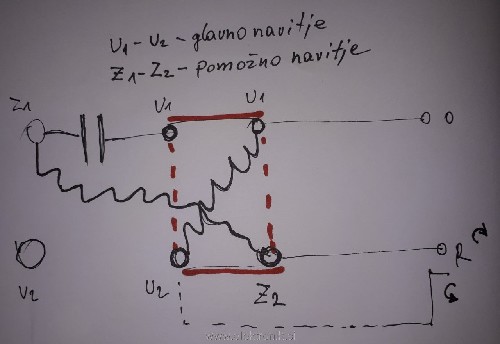 U1-U2-glavno navitje
Z1-Z2-pomožno navitje
Z1
U1
U1
0
R
U2
U2
Z2